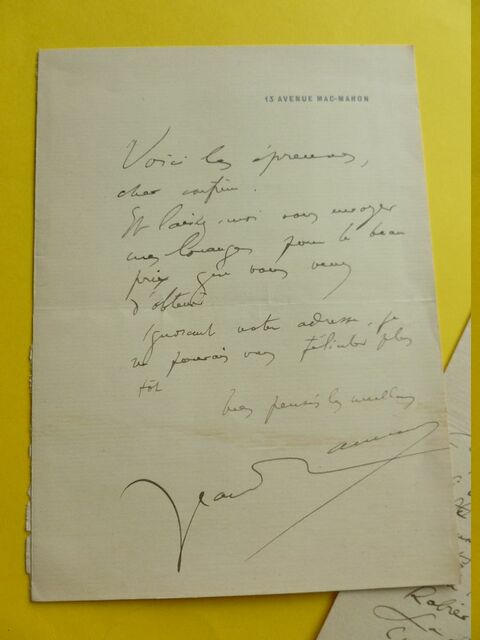 13 AVENUE MAC-MAHON
Voici les épreuves,
cher confrère.
Et laissez-moi vous envoyer
mes louanges pour le beau
prix que vous venez
d'obtenir
Ignorant votre adresse, je
ne pouvais vous féliciter plus
tôt
Mes pensées les meilleures
Jean